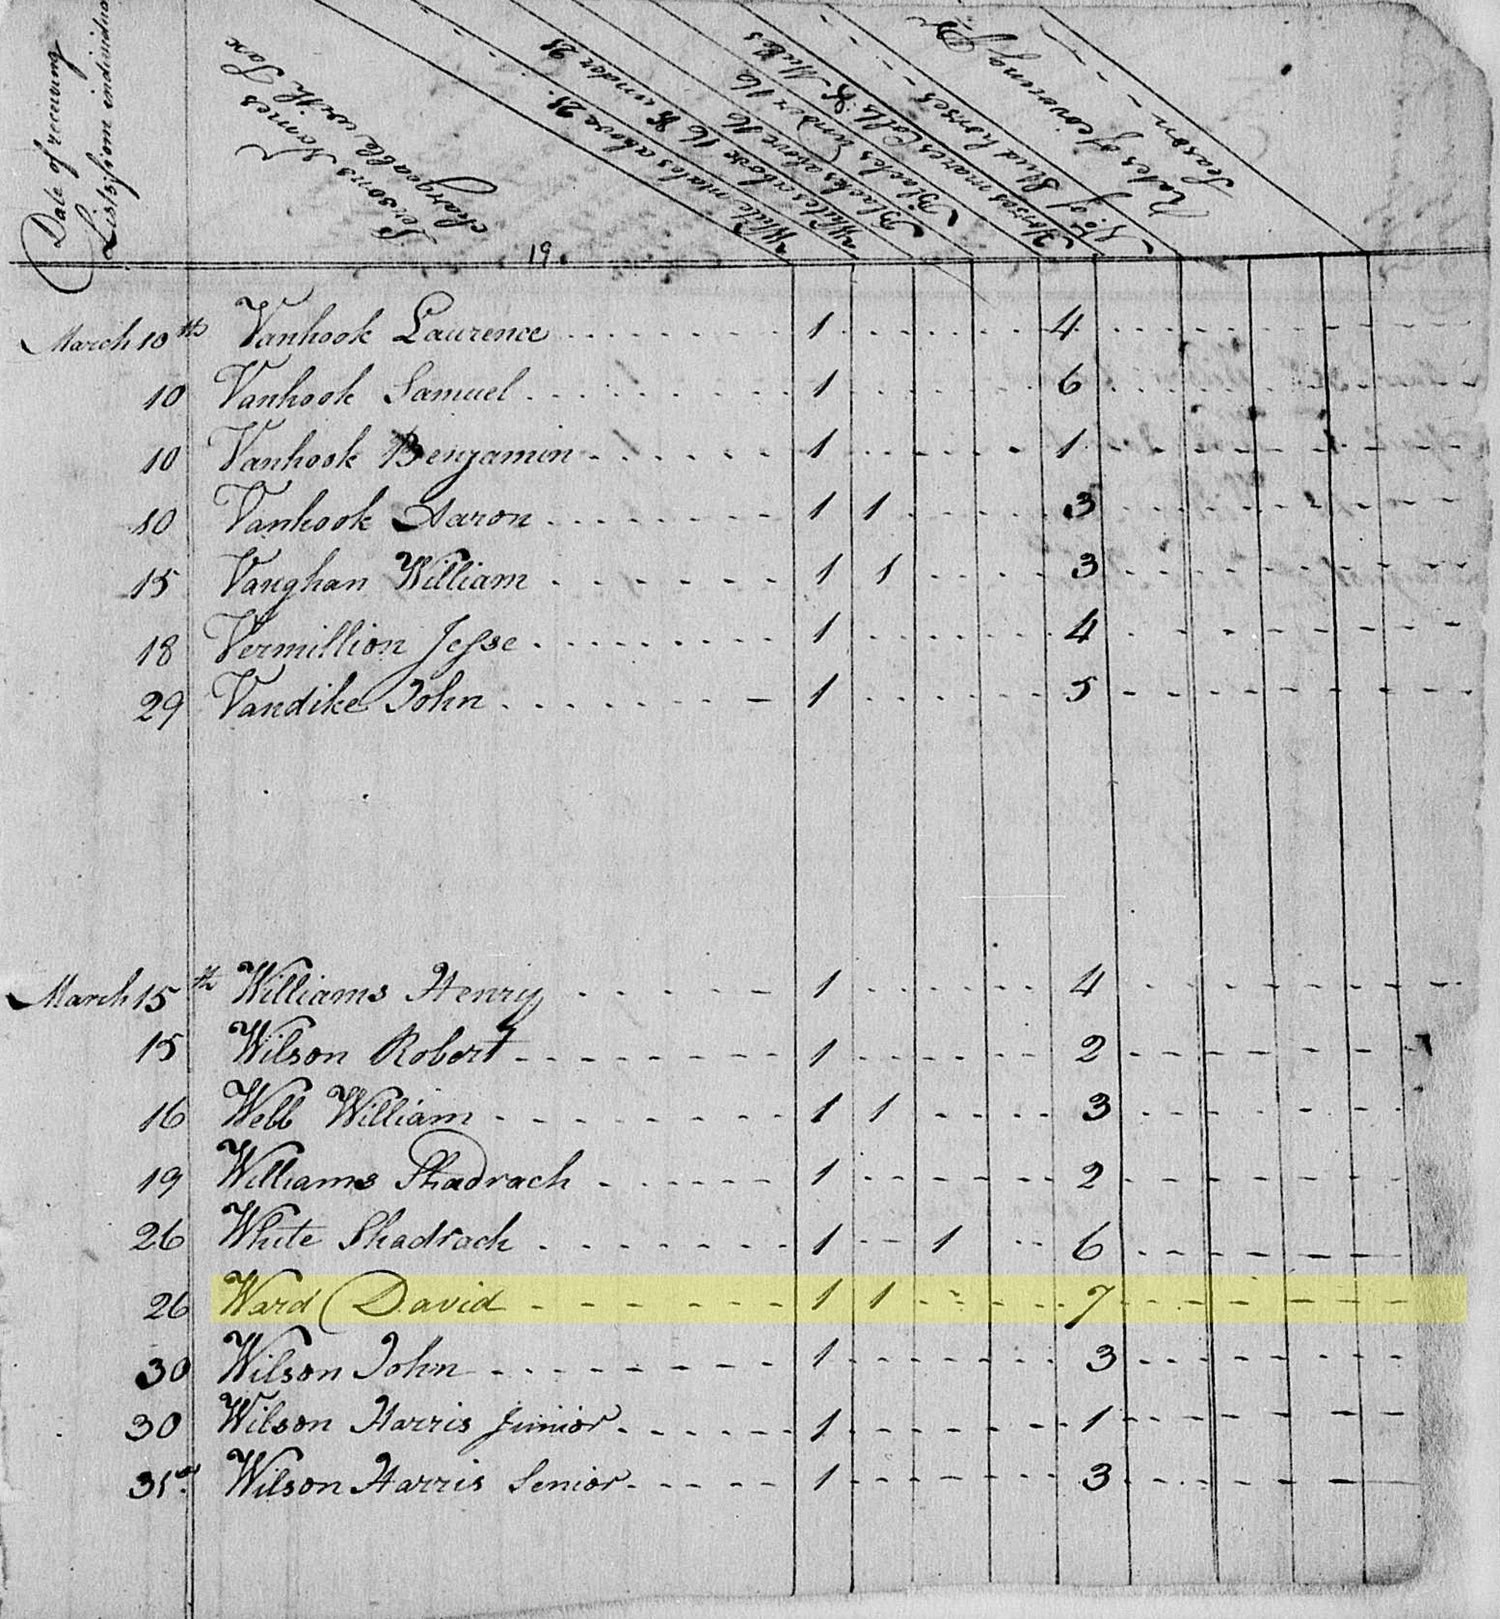 Date of receiving
Lists from individua
Persons Names
chargeable with Tax
White males above 21.
Whites above 16 & under 21
Blacks above 16
Blacks under 16
Horses mares Colts & Mules
No. of Stud horses
Rates of covering Pr
Season
19.
March 10th Vanhook Laurence 1 4
10 Vanhook Samuel 1 6
10 Vanhook Benjamin 1 1
10 Vanhook Aaron 1 1 3
15 Vaughan William 1 1 3
18 Vermillion Jesse 1 4
29 Vandike John 1 5
March 15th Williams Henry 1 4
15 Wilson Robert 1 2
16 Webb William 1 1 3
19 Williams Shadrach 1 2
26 White Shadrach 1 1 6
26 Ward David 1 1 7
30 Wilson John 1 3
30 Wilson Harris Junior 1 1
31st Wilson Harris Senior 1 3